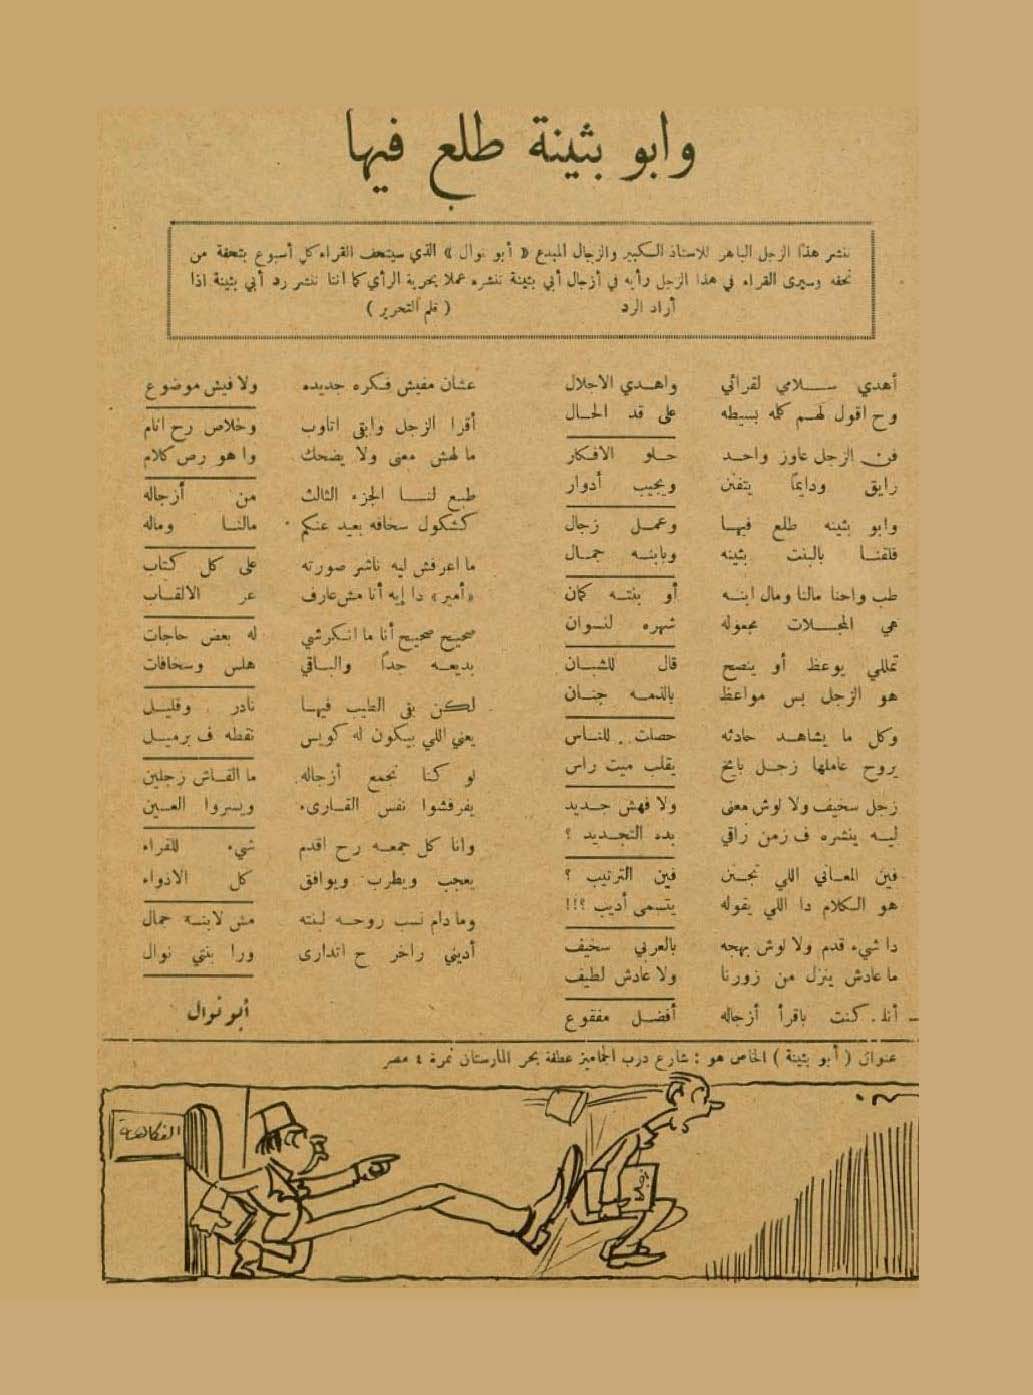 وابو بثينة طلع فيها
ننشر هذا الزجل الباهر للاستاذ الكبير والزجال المبدع « أبو نوال » الذي سيتحف القراء كل أسبوع بتحفة من
تحفه وسيرى القراء في هذا الزجل رأيه في أزجال أبي بثينة ننشره عملا بحرية الرأي كما اننا ننشر رد أبي بثينة اذا
أراد الرد ( قلم التحرير )
أهدي سلامي لقرائي واهدي الاجلال
وح اقول لهم كله بسيطه على قد الحال
فن الزجل عاوز واحد حلو الافكار
رايق ودايماً يتفنن ويجيب أدوار
وابو بثينه طلع فيها وعمل زجال
فلقنا بالبنت بثينه وبابنه جمال
طب واحنا مالنا ومال ابنه أو بنته كمان
هي المجلات مجعوله شهره لنسوان
تمللي يوعظ أو ينصح قال للشبان
هو الزجل بس مواعظ بالذمه جنان
وكل ما يشاهد حادثه حصلت . للناس
يروح عاملها زجل بايخ يقلب ميت راس
زجل سخيف ولا لوش معنى ولا فهش جديد
ليه ينشره ف زمن راقي بده التجديد ؟
فين المعاني اللي تجنن فين الترتيب ؟
هو الكلام دا اللي يقوله يتسمى أديب ؟!!
دا شيء قدم ولا لوش بهجه بالعربي سخيف
ما عادش ينزل من زورنا ولا عادش لطيف
أنا . كنت باقرأ أزجاله أفضل مفقوع
عشان مفيش فكره جديده ولا فيش موضوع
أقرا الزجل وابقى اتاوب وخلاص رح انام
ما لهش معنى ولا يضحك واهو رص كلام
طبع لنا الجزء الثالث من أزجاله
كشكول سخافه بعيد عنكم مالنا وماله
ما اعرفش ليه ناشر صورته على كل كتاب
«أمير» دا إيه أنا مش عارف عر الالقاب
صحيح صحيح أنا ما انكرشي له بعض حاجات
بديعه جداً والباقي هلس وسخافات
لكن بقى الطيب فيها نادر وقليل
يعني اللي بيكون له كويس نقطه ف برميل
لو كنا نجمع أزجاله ما القاش زجلين
يفرفشوا نفس القارىء ويسروا العين
وانا كل جمعه رح اقدم شيء للقراء
يعجب ويطرب ويوافق كل الاذواء
وما دام نسب روحه لبنته مش لابنه جمال
أديني راخر ح اتدارى ورا بنتي نوال
أبو نوال
عنوان ( أبو بثينة ) الخاص هو : شارع درب الجماميز عطفة بحر المارستان نمرة ٤ مصر
الفكاهة